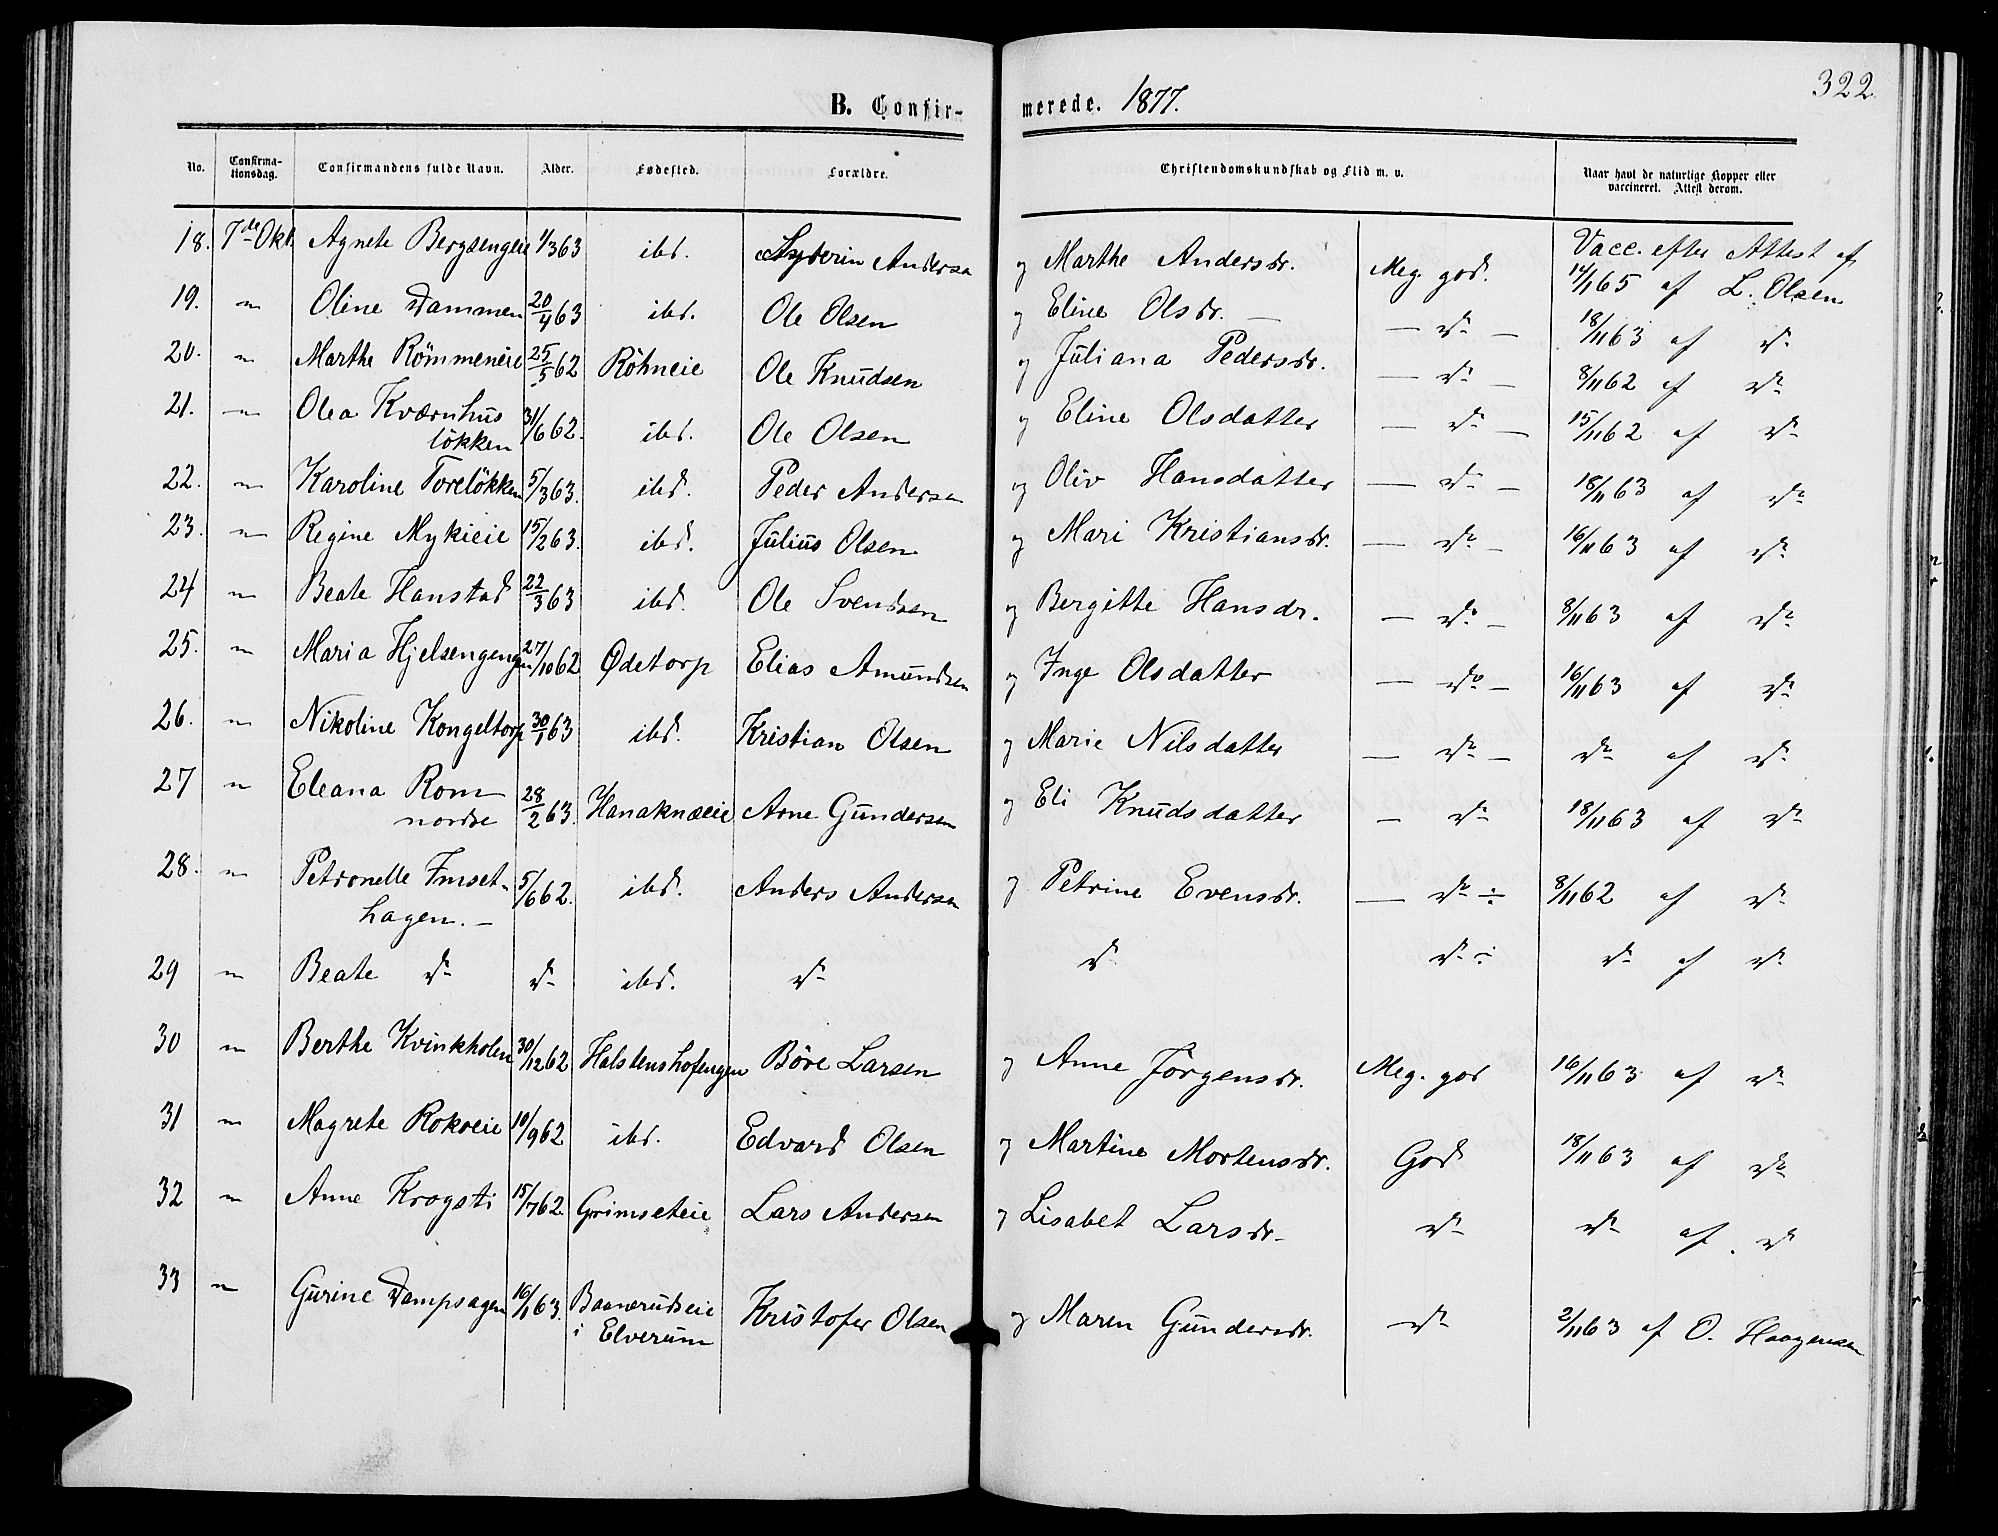 322.
B. Confirmerede. 1877.
No. Confirmationsdag. Confirmandens fulde Navn. Alder. Fødested. Forældre. Christendomskundskab og Flid m. v. Naar havt de naturlige Kopper eller vaccineret. Attest derom.
18. 7de Okt. Agnete Bergsengeie 1/3 63 ibd. Andersen og Marthe Andersdr. Meg. god. Vacc. efter Attest af
14/1 65 af L. Olsen
19. " Oline Dammen 20/4 63 ibd. Ole Olsen og Eline Olsdr. — — do — 18/11 63 af do
20. " Marthe Römmeneie 25/5 62 Röhneie Ole Knudsen og Juliana Pedersdr. — do — 8/11 62 af do
21. " Olea Kværnhus
lökken 31/6 62. ibd. Ole Olsen og Eline Olsdatter — do — 15/11 62 af do
22. " Karoline Torelökken 5/3 63. ibd. Peder Andersen og Oliv Hansdatter — do — 18/11 63 af do
23. " Regine Mykieie 15/2 63. ibd. Julius Olsen og Mari Kristiansdr. — do — 16/11 63 af do
24 " Beate Hanstad 22/3 63 ibd. Ole Svendsen og Bergitte Hansdr. — do — 8/11 63 af do
25. " Maria Hjelsengengen 27/10 62 Ødetorp Elias Amundsen og Inge Olsdatter — do — 16/11 63 af do
26. " Nikoline Kongeltorp 30/1 63 ibd. Kristian Olsen og Marie Nilsdatter — do — do af do
27 " Eleana Rom
nordse 28/2 63. Hanaknæeie Arne Gundersen og Eli Knudsdatter — do 18/11 63 af do
28. " Petronelle Imset-
hagen. — 5/6 62. ibd. Anders Andersen og Petrine Evensdr. — do ÷ 8/11 62 af do
29 " Beate do do ibd. do do do ÷ do af do
30 " Berthe Kvinkholen 30/12 62 Halstenshofengen Böre Larsen og Anne Jörgensdr. Meg. god 16/11 63 af do
31 " Magrete Rokoeie 10/9 62 ibd. Edvard Olsen og Martine Mortensdr. God 18/11 63 af do
32 " Anne Krogsti 15/7 62. Grimseteie Lars Andersen og Lisabet Larsdr. do do af do
33 " Gurine Dampsagen 16/1 63. Baanrudseie
i Elverum Kristofer Olsen og Maren Gundersdr. do 2/11 63 af O. Haagensen